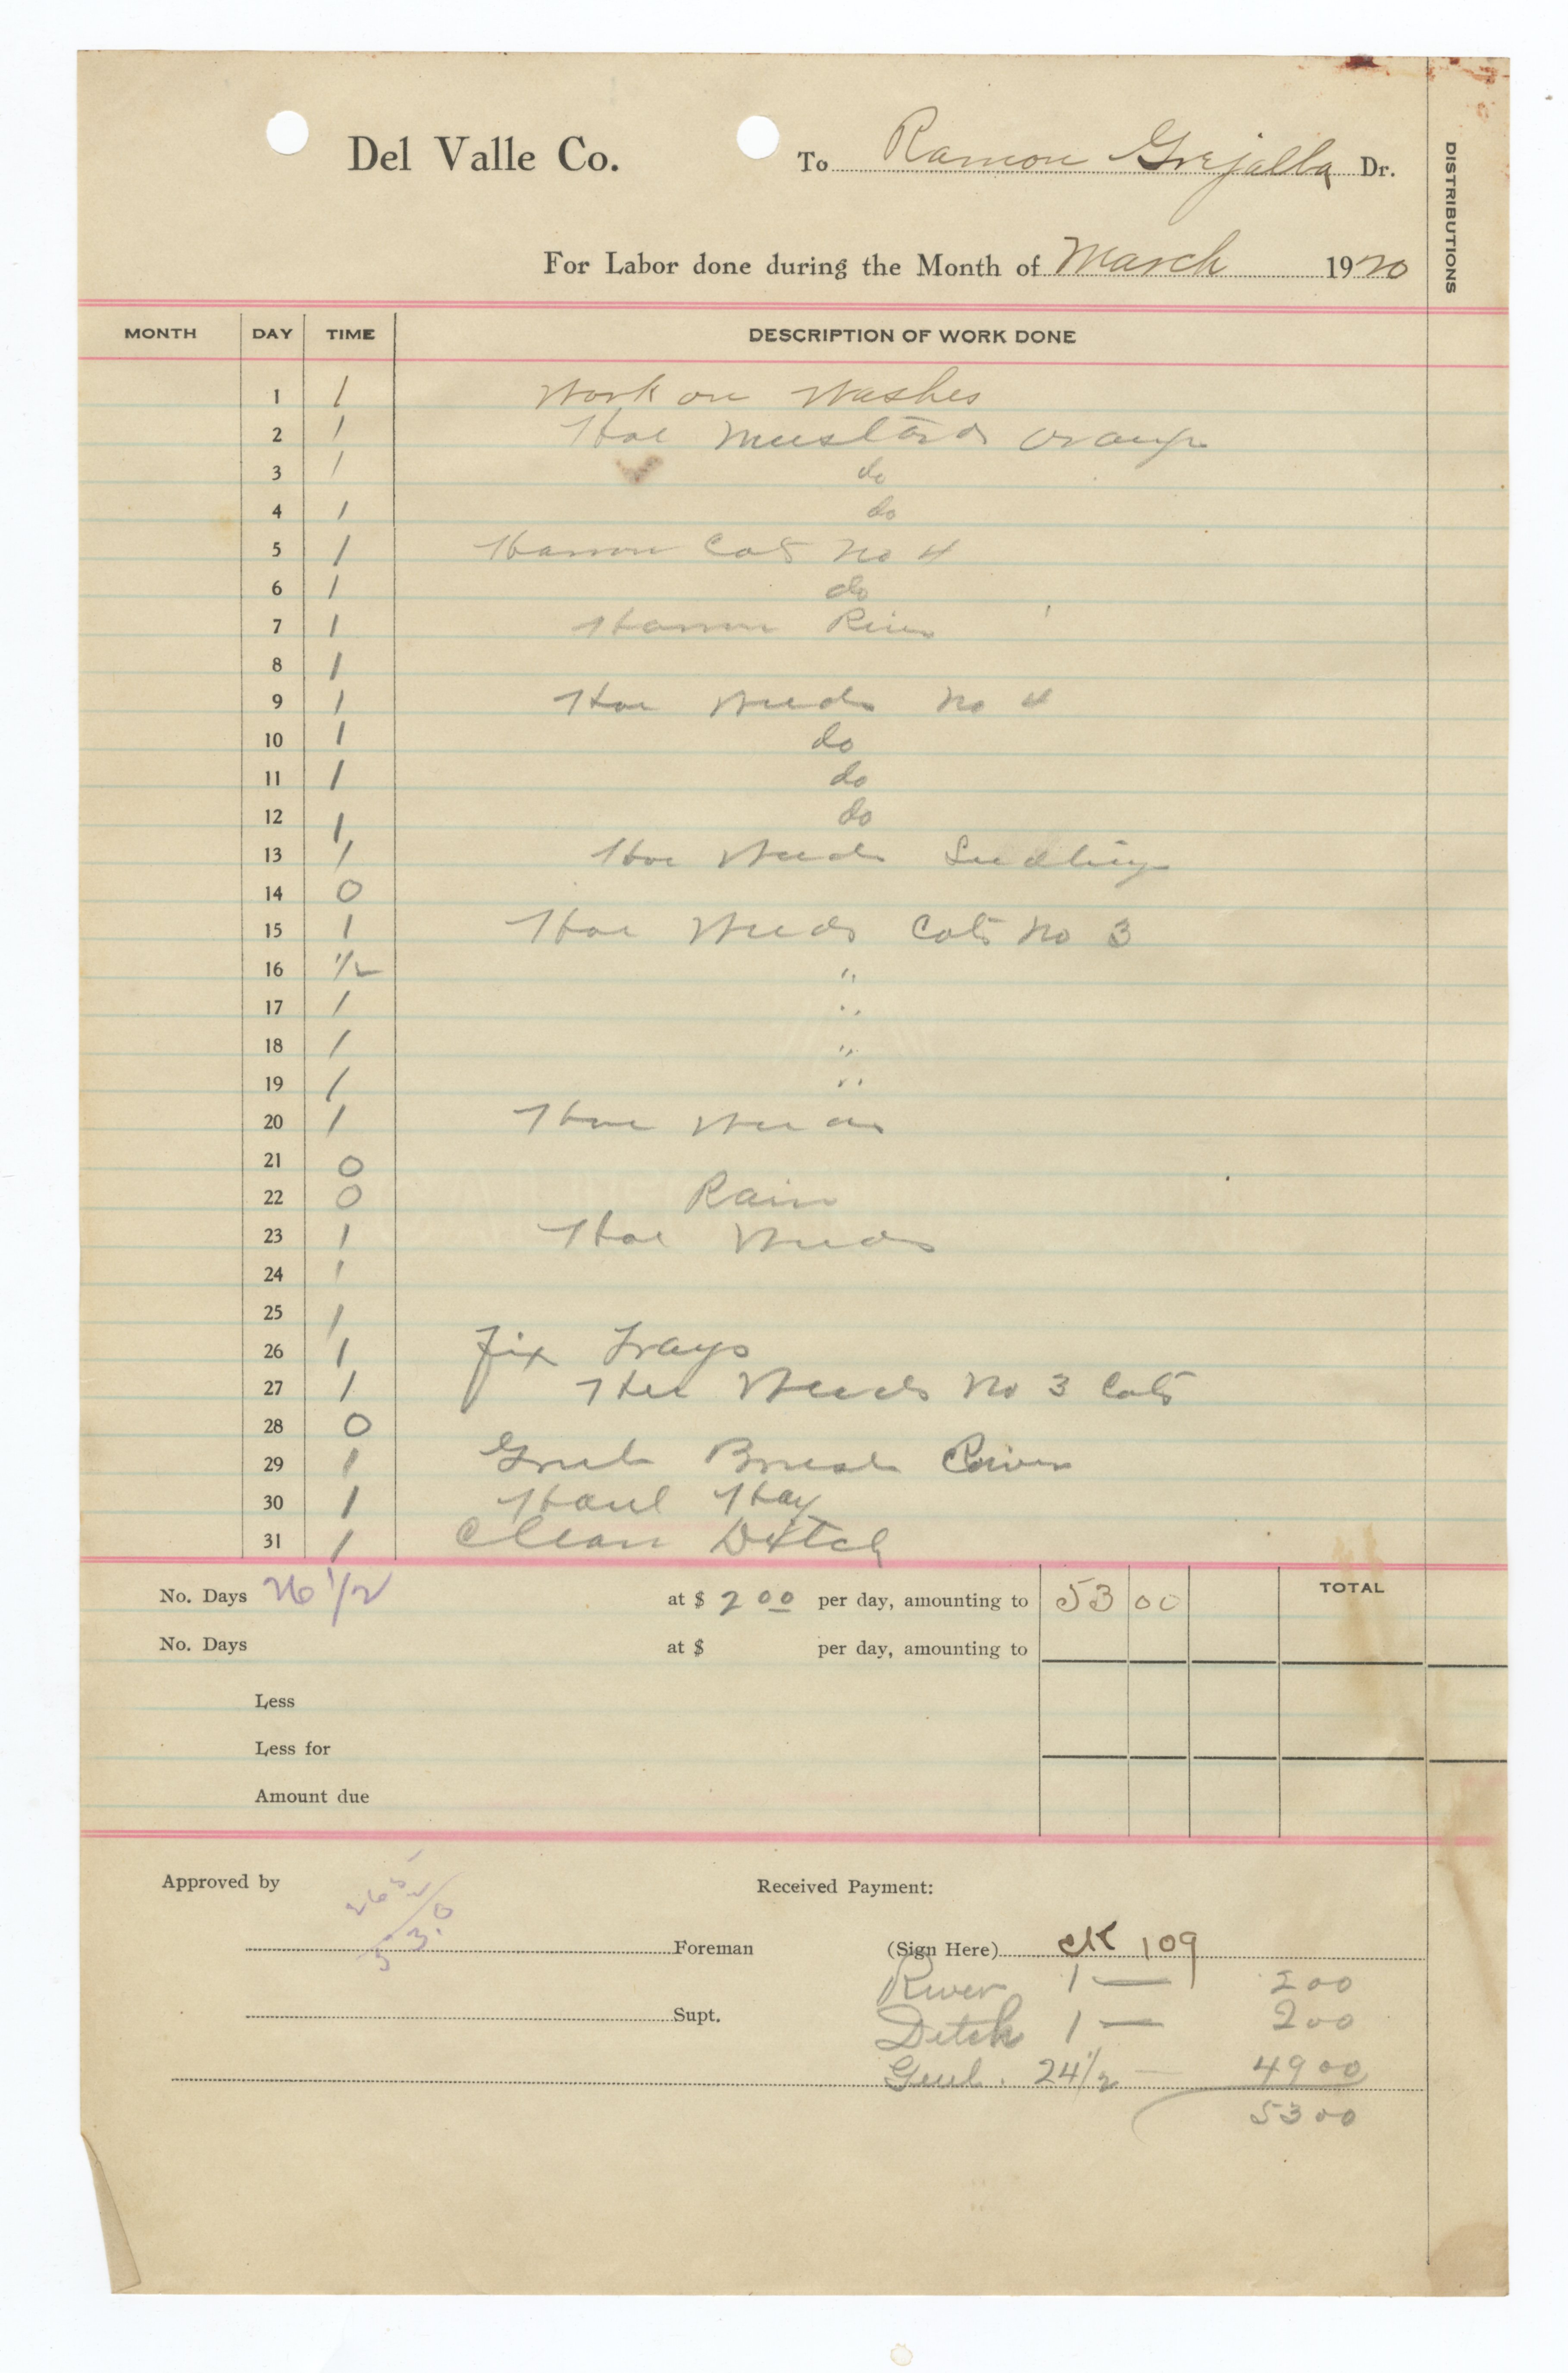 Del Valle Co. To Ramon Grejalba Dr.
DISTRIBUTIONS
For Labor done during the Month of March 1920
MONTH DAY TIME DESCRIPTION OF WORK DONE
1 1 Work on Washes
2 1 Hoe Mustard Orange
3 1 do
4 1 do
5 1 Harrow Cots No 4
6 1 do
7 1 Harrow River
8 1
9 1 Hoe Weeds No 4
10 1 do
11 1 do
12 1 do
13 1 Hoe Weeds Seedling
14 0
15 1 Hoe Weeds Cots No 3
16 1/2 "
17 1 "
18 1 "
19 1 "
20 1 Hoe Weeds
21 0
22 0 Rain
23 1 Hoe Weeds
24 1
25 1
26 1 Fix Trays
27 1 Hoe Weeds No 3 Cots
28 0
29 1 Grub Brush River
30 1 Haul Hay
31 1 Clean Ditch
No. Days 26 1/2 at $ 2 00 per day, amounting to 53 00 TOTAL
No. Days at $ per day, amounting to
Less
Less for
Amount due
Approved by Received Payment:
26 5
2
53.0
Foreman (Sign Here) CK 109
River 1 — 200
Supt. Ditch 1 — 200
Genl. 24 1/2 — 4900
5300